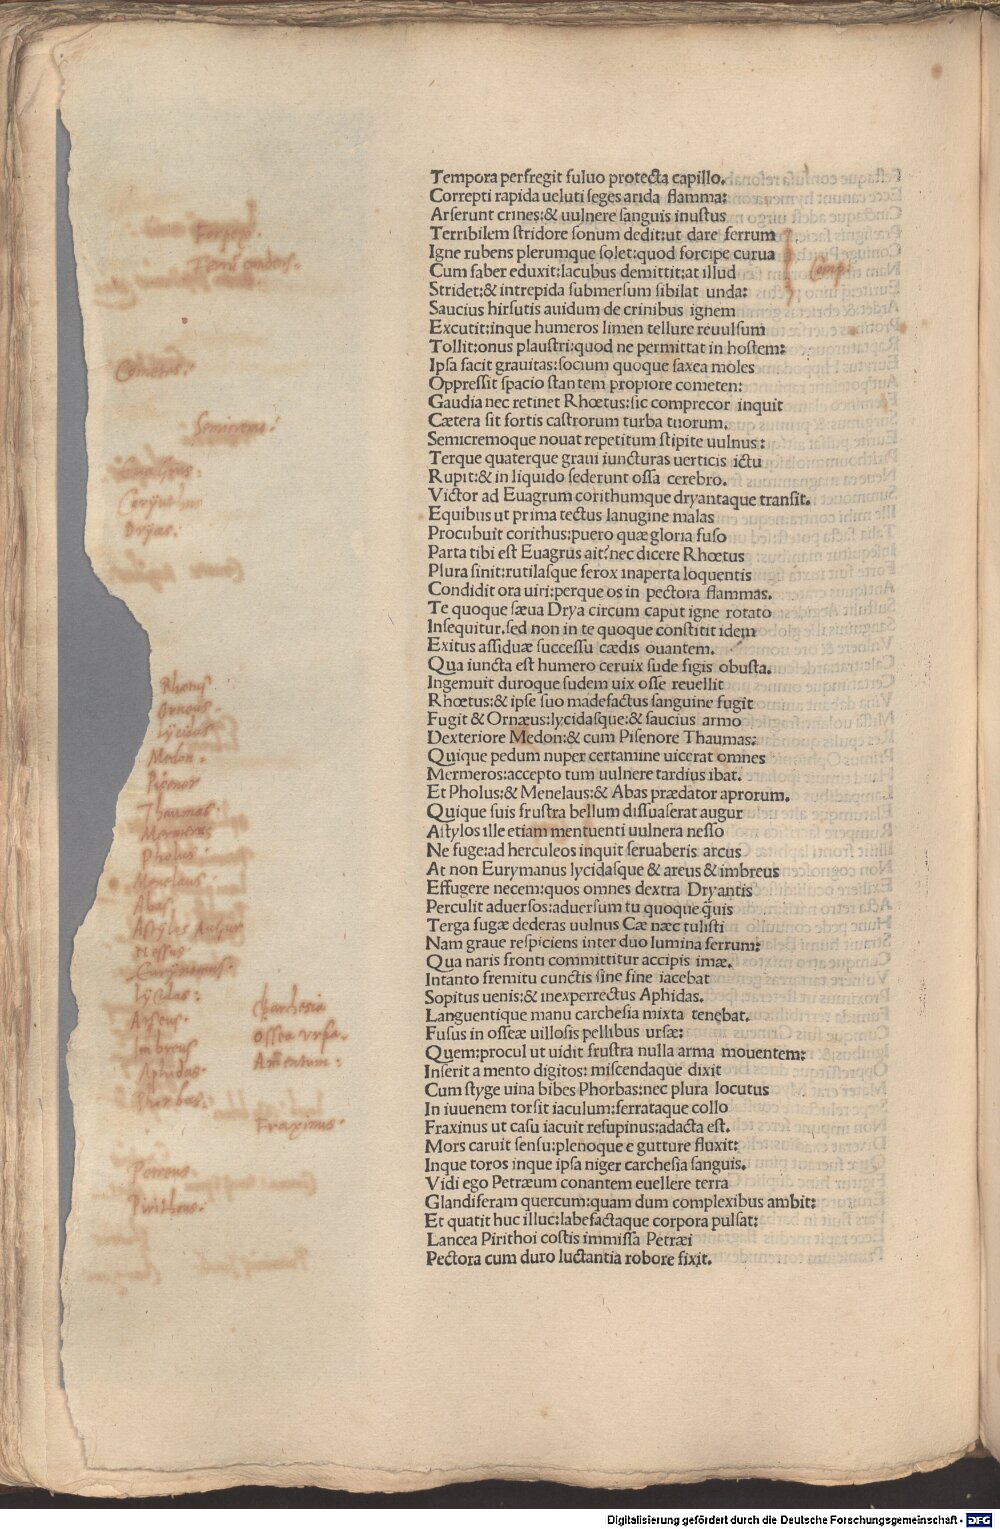 Tempora perfregit fuluo protecta capillo.
Correpti rapida ueluti seges arida flamma:
Arserunt crines:& uulnere sanguis inustus
Terribilem stridore sonum dedit:ut dare ferrum
Igne rubens plerumque solet:quod forcipe curua
Cum faber eduxit:lacubus demittit:at illud
Stridet:& intrepida submersum sibilat unda:
Saucius hirsutis auidum de crinibus ignem
Excutit:inque humeros limen tellure reuulsum
Tollit:onus plaustri:quod ne permittat in hostem:
Ipsa facit grauitas:socium quoque saxea moles
Oppressit spacio stantem propiore cometen:
Gaudia nec retinet Rhœtus:sic comprecor inquit
Cætera sit fortis castrorum turba tuorum.
Semicremoque nouat repetitum stipite uulnus:
Terque quaterque graui iuncturas uerticis ictu
Rupit:& in liquido sederunt ossa cerebro.
Victor ad Euagrum corithumque dryantaque transit.
Equibus ut prima tectus lanugine malas
Procubuit corithus:puero quæ gloria fuso
Parta tibi est Euagrus ait?nec dicere Rhœtus
Plura sinit:rutilasque ferox inaperta loquentis
Condidit ora uiri:perque os in pectora flammas.
Te quoque sæua Drya circum caput igne rotato
Insequitur.sed non in te quoque constitit idem
Exitus assiduæ successu cædis ouantem.
Qua iuncta est humero ceruix sude figis obusta.
Ingemuit duroque sudem uix osse reuellit
Rhœtus:& ipse suo madefactus sanguine fugit
Fugit & Ornæus:lycidasque:& saucius armo
Dexteriore Medon:& cum Pisenore Thaumas:
Quique pedum nuper certamine uicerat omnes
Mermeros:accepto tum uulnere tardius ibat.
Et Pholus:& Menelaus:& Abas prædator aprorum.
Quique suis frustra bellum dissuaserat augur
Astylos ille etiam mentuenti uulnera nesso
Ne fuge:ad herculeos inquit seruaberis arcus
At non Eurymanus lycidasque & areus & imbreus
Effugere necem:quos omnes dextra Dryantis
Perculit aduersos:aduersum tu quoque q̃uis
Terga fugæ dederas uulnus Cæ næc tulisti
Nam graue respiciens inter duo lumina ferrum:
Qua naris fronti committitur accipis imæ.
Intanto fremitu cunctis sine fine iacebat
Sopitus uenis:& inexperrectus Aphidas.
Languentique manu carchesia mixta tenebat.
Fusus in osseæ uillosis pellibus ursæ:
Quem:procul ut uidit frustra nulla arma mouentem:
Inserit amento digitos: miscendaque dixit
Cum styge uina bibes Phorbas:nec plura locutus
In iuuenem torsit iaculum:ferrataque collo
Fraxinus ut casu iacuit resupinus:adacta est.
Mors caruit sensu:plenoque e gutture fluxit:
Inque toros inque ipsa niger carchesia sanguis.
Vidi ego Petræum conantem euellere terra
Glandiferam quercum:quam dum complexibus ambit:
Et quatit huc illuc:labefactaque corpora pulsat:
Lancea Pirithoi costis immissa Petræi
Pectora cum duro luctantia robore fixit.
Comp:
Cometes:
Dryas:
Medon:
Thaumas:
Mermeros
Pholus:
Menelaus:
Abas
Astylos Augur
Nessus
Lycidas:
Imbreus
Aphidas:
Phorbas:
Carchesia
Ossea vrsa.
Amentum:
Fraxinus:
Petreus
Piritheus:
Digitalisierung gefördert durch die Deutsche Forschungsgemeinschaft - DFG